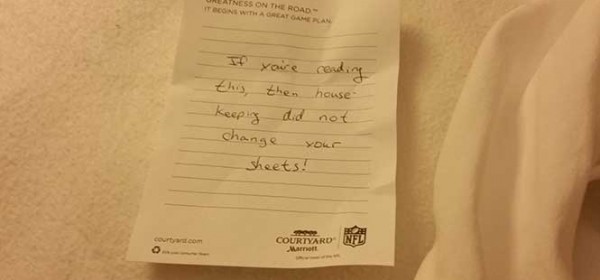 GREATNESS ON THE ROAD.™
IT BEGINS WITH A GREAT GAME PLAN.
If you're reading
this, then house-
keeping did not
change your
sheets!
courtyard.com
COURTYARD®
Marriott
NFL